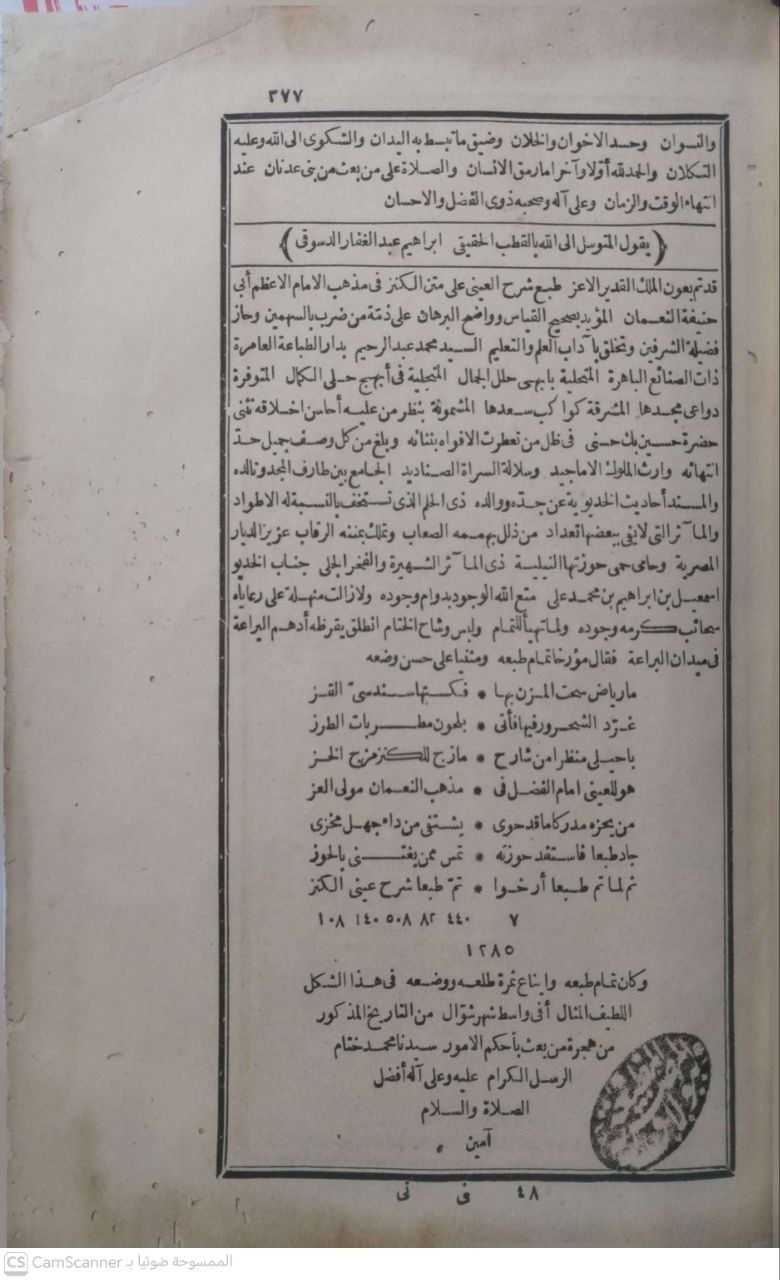 ٣٧٧
والنسوان وحسد الاخوان والخلان وضيق ما تبسط به اليدان والشكوى الى الله وعليه
التكلان والحمد لله أوّلا وآخرا ما رمق الانسان والصلاة على من بعث من بنى عدنان عند
انتهاء الوقت والزمان وعلى آله وصحبه ذوى الفضل والاحسان
(يقول المتوسل الى الله بالقطب الحقيقى ابراهيم عبد الغفار الدسوقى)
قد تم بعون الملك القدير الاعز طبع شرح العينى على متن الكنز فى مذهب الامام الاعظم أبى
حنيفة النعمان المؤيد بصحيح القياس وواضح البرهان على ذمّة من ضرب بالسهمين وحاز
فضيلة الشرفين وتخلق بآداب العلم والتعليم السيد محمد عبد الرحيم بدار الطباعة العامرة
ذات الصنائع الباهرة المتحلية بابهى حلل الجمال المتجلية فى أبهج حلى الكمال المتوفرة
دواعى مجدها المشرقة كواكب سعدها المشمولة بنظر من عليه أحاسن اخلاقه تثنى
حضرة حسين بك حسنى فى ظل من تعطرت الافواه بثنائه وبلغ من كل وصف جميل حدّ
انتهائه وارث الملوك الاماجيد وسلالة السراة الصناديد الجامع بين طارف المجد وتالده
والمسند أحاديث الخديوية عن جدّه ووالده ذى الحلم الذى تستخف بالنسبة له الاطواد
والمآثر التى لا يفى ببعضها تعداد من ذلل بهممه الصعاب وتملك بمننه الرقاب عزيز الديار
المصرية وحامى حمى حوزتها النيلية ذى المآثر الشهيرة والفخر الجلى جناب الخديو
اسمعيل بن ابراهيم بن محمد على متع الله الوجود بدوام وجوده ولا زالت منهلة على رعاياه
سحائب كرمه وجوده ولما تهيأ للتمام ولبس وشاح الختام انطلق يقرظه أدهم اليراعة
فى ميدان البراعة فقال مؤرخا تمام طبعه ومثنيا على حسن وضعه
ما رياض سحت المزن بها * فكستها سندسىّ القز
غرّد الشحرور فيها فأتى * بلحون مطربات الطرز
يا حيلى منظرا من شارح * مازج للكنز مزج الخز
هو للعينى امام الفضل فى * مذهب النعمان مولى العز
من يحزه مدركا ما قد حوى * يشتفى من داء جهل مخزى
جاد طبعا فاستفد حوزته * تمس ممن يغتنى بالحوز
ثم لما تم طبعا أرخوا * تمّ طبعا شرح عينى الكنز
٧ ٤٤٠ ٨٢ ٥٠٨ ١٤٠ ١٠٨
١٢٨٥
وكان تمام طبعه وايناع ثمرة طلعه ووضعه فى هذا الشكل
اللطيف المثال أفى واسط شهر شوّال من التاريخ المذكور
من هجرة من بعث بأحكم الامور سيدنا محمد ختام
الرسل الكرام عليه وعلى آله أفضل
الصلاة والسلام
آمين
٤٨ فى نى
CS CamScanner الممسوحة ضوئيا بـ